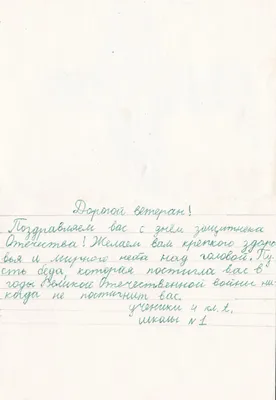 Дорогой ветеран!
Поздравляем вас с днём защитнека
Отечества! Желаем вам крепкого здоро
вья и мирного неба над головой. Пу
сть беда, которая постигла вас в
годы Великой Отечественной войны ни
когда не постигнит вас.
ученики 4 кл. 2,
школы №1